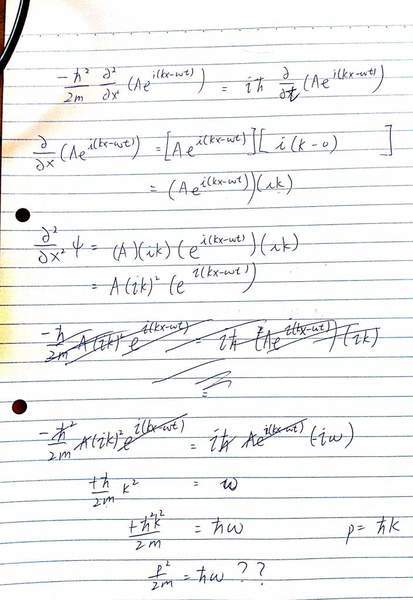 -ħ²/2m ∂²/∂x² (Ae^i(kx-wt)) = iħ ∂/∂t (Ae^i(kx-wt))
∂/∂x (Ae^i(kx-wt)) = [Ae^i(kx-wt)][i(k-0)]
= (Ae^i(kx-wt))(ik)
∂²/∂x² ψ = (A)(ik)(e^i(kx-wt))(ik)
= A(ik)² (e^i(kx-wt))
-ħ/2m A(ik)² e^i(kx-wt) = iħ (Ae^i(kx-wt))(ik)
-ħ²/2m A(ik)² e^i(kx-wt) = iħ Ae^i(kx-wt) (-iω)
+ħ/2m k² = ω
+ħ²k²/2m = ħω p = ħk
p²/2m = ħω ??